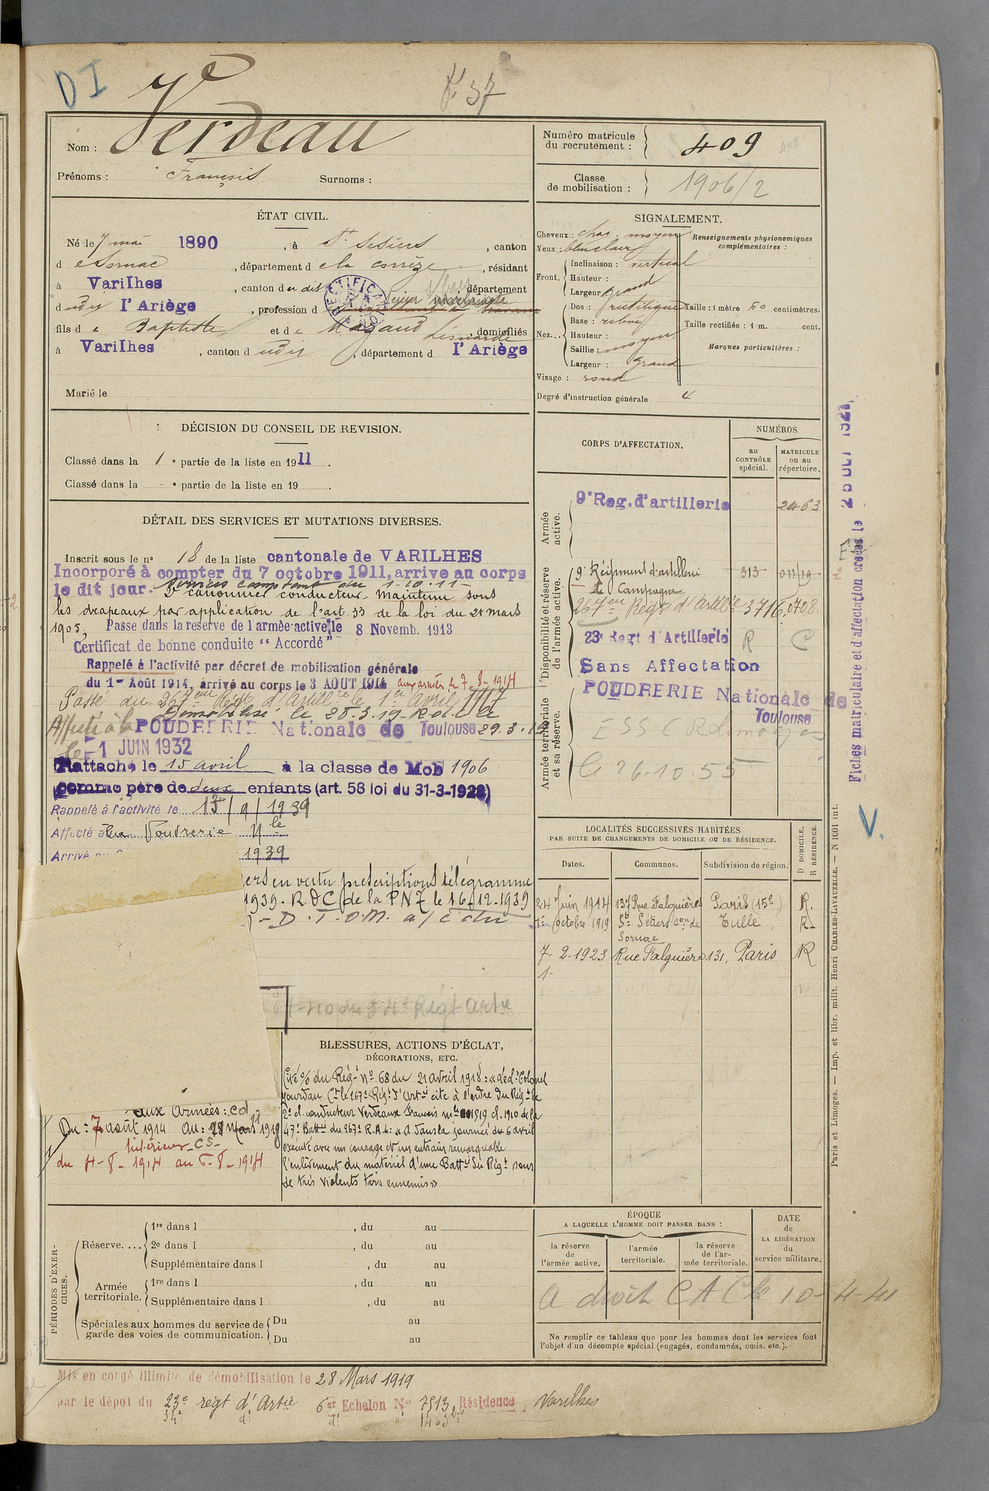 D I
F° 37
Nom : Verdeau
Prénoms : François Surnoms :
Numéro matricule du recrutement : 409
Classe de mobilisation : 1906/2
ÉTAT CIVIL.
Né le 7 mai 1890, à St Setiers, canton
d e Sornac, département d e la corrèze, résidant
à Varilhes, canton d u dit, département
d udit l'Ariège, profession d
fils d e Baptiste et d e Magaud Léonarde, domiciliés
à Varilhes, canton d udit, département d l'Ariège
Marié le
SIGNALEMENT.
Cheveux : chat. moyen
Yeux : bleu clair
Renseignements physionomiques complémentaires :
Front. Inclinaison : vertical
Hauteur :
Largeur : Grand
Nez... Dos : rectiligne
Base : relevé
Hauteur :
Saillie : moyen
Largeur : Grand
Visage : rond
Taille : 1 mètre 60 centimètres.
Taille rectifiée : 1 m. cent.
Marques particulières :
Degré d'instruction générale 4
DÉCISION DU CONSEIL DE REVISION.
Classé dans la 1 e partie de la liste en 1911.
Classé dans la e partie de la liste en 19
CORPS D'AFFECTATION.
NUMÉROS
AU CONTRÔLE spécial.
MATRICULE ou au répertoire.
Armée active.
9e Reg. d'artillerie 2463
Disponibilité et réserve de l'armée active.
9e Régiment d'artillerie de Campagne 313
267eme Régt d'Artie 3716
23e Regt d'Artillerie R C
Sans Affectation
Armée territoriale et sa réserve.
POUDRERIE Nationale de Toulouse
le 26-10-55
DÉTAIL DES SERVICES ET MUTATIONS DIVERSES.
Inscrit sous le n° 18 de la liste cantonale de VARILHES
Incorporé à compter du 7 octobre 1911, arrive au corps
le dit jour. Services comptent du 1-10-11
2e canonnier conducteur Maintenu sous
les drapeaux par application de l'art. 33 de la loi du 21 mars
1905, Passe dans la réserve de l'armée active, le 8 Novemb. 1913
Certificat de bonne conduite "Accordé"
Rappelé à l'activité par décret de mobilisation générale
du 1er Août 1914, arrivé au corps le 3 AOUT 1914 aux armées le 7-8-1914
Passé au 267eme Régt d'Artill le 1er Avril 1917
Démobilisé le 28-3-19
Affecté à la POUDRERIE Nationale de Toulouse
le 1 JUIN 1932
Rattaché le 15 avril à la classe de Mob 1906
comme père de deux enfants (art. 58 loi du 31-3-1928)
Rappelé à l'activité le 13/9/1939
Affecté à la Poudrerie Nle
Arrivé au 1939
en vertu prescriptions télégramme
1939. RDC de la PNT le 16-12-1939
LOCALITÉS SUCCESSIVES HABITÉES
PAR SUITE DE CHANGEMENTS DE DOMICILE OU DE RÉSIDENCE.
Dates. Communes. Subdivision de région. D DOMICILE. R RÉSIDENCE.
24 Juin 1914 137 Rue Falguière Paris (15e) R.
1er Octobre 1919 St Sétiers con de Sornac Tulle R.
7-2-1923 Rue Falguière 131, Paris R
BLESSURES, ACTIONS D'ÉCLAT,
DÉCORATIONS, ETC.
Cité O/ du Régt n° 68 du 21 avril 1918 : « Le Lt Colonel
Jourdan Ct le 267e Régt d'Artie cite à l'ordre du Régt le
2e cl. conducteur Verdeaux François
47e Battie du 267e R.A.C. « A dans la journée du 6 avril
exécuté avec un courage et un entrain remarquable
l'enlèvement du matériel d'une Battie du Régt sous
de très violents tirs ennemis »
aux Armées : CD
Du : 7 août 1914 au : 28 Mars 1919
Intérieur CS
du 4-8-1914 au 6-8-1914
PÉRIODES D'EXERCICES.
Réserve.... 1re dans l , du au
2e dans l , du au
Supplémentaire dans l , du au
Armée territoriale. 1re dans l , du au
Supplémentaire dans l , du au
Spéciales aux hommes du service de garde des voies de communication. Du au
Du au
ÉPOQUE
A LAQUELLE L'HOMME DOIT PASSER DANS :
la réserve de l'armée active.
l'armée territoriale.
la réserve de l'armée territoriale.
DATE de LA LIBÉRATION du service militaire.
A droit CAC le 10-4-41
Ne remplir ce tableau que pour les hommes dont les services font
l'objet d'un décompte spécial (engagés, condamnés, omis, etc.).
Mis en congé illimité de démobilisation le 28 Mars 1919
par le dépôt du 23e régt d'Artie 6er Echelon N° 7513, Résidence, Varilhes
Fiches matriculaire et d'affectation créées le
V.
Paris et Limoges. — Imp. et libr. milit. Henri CHARLES-LAVAUZELLE. — N 1001 int.